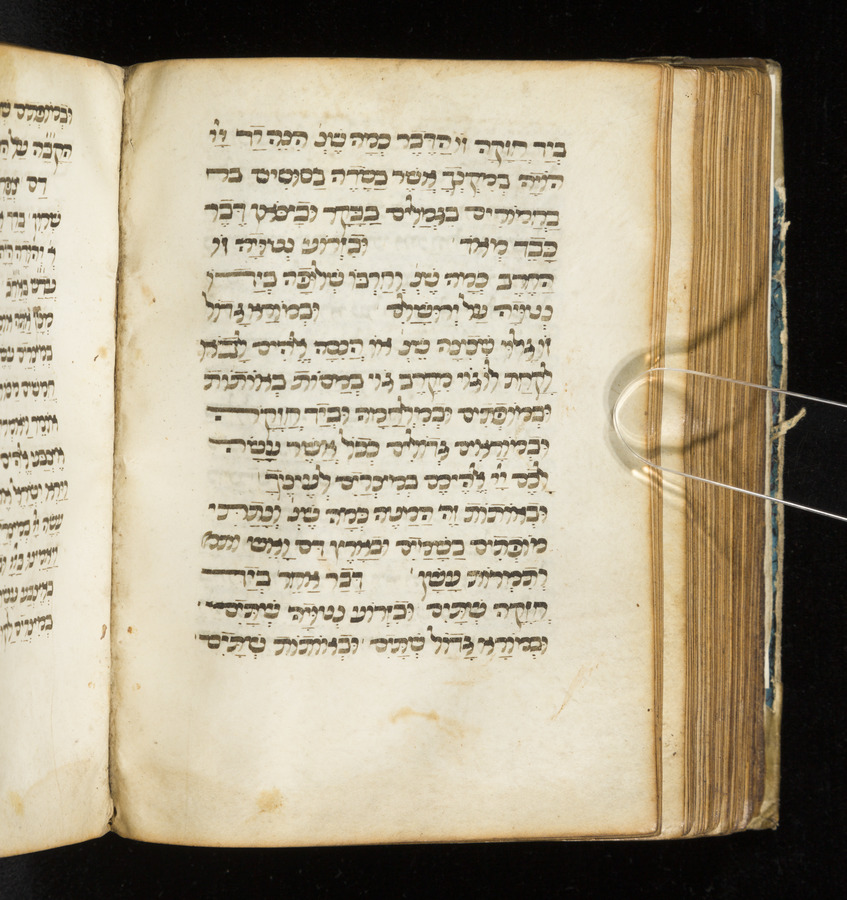 ביד חזקה זו הדבר כמה שנ הנה יד ייי
הויה במקנך אשר בשדה בסוסים
בחמורים בגמלים בבקר ובצאן דבר
כבד מאד ובזרוע נטויה זו
החרב כמה שנ וחרבו שלופה בידו
נטויה על ירושלם ובמורא גדול
זו גילוי שכינה שנ או הנסה אלהים לבא
לקחת לו גוי מקרב גוי במסות באותות
ובמופתים ובמלחמה וביד חזקה
ובמוראים גדולים ככל אשר עשה
לכם ייי אלהיכם במצרים לעיניך
ובאותות זה המטה כמה שנ
מופתים בשמים ובארץ דם ואש
ותמרות עשן דבר אחר ביד
חזקה שתים ובזרוע נטויה שתים
ובמורא גדול שתים ובאותות שתים